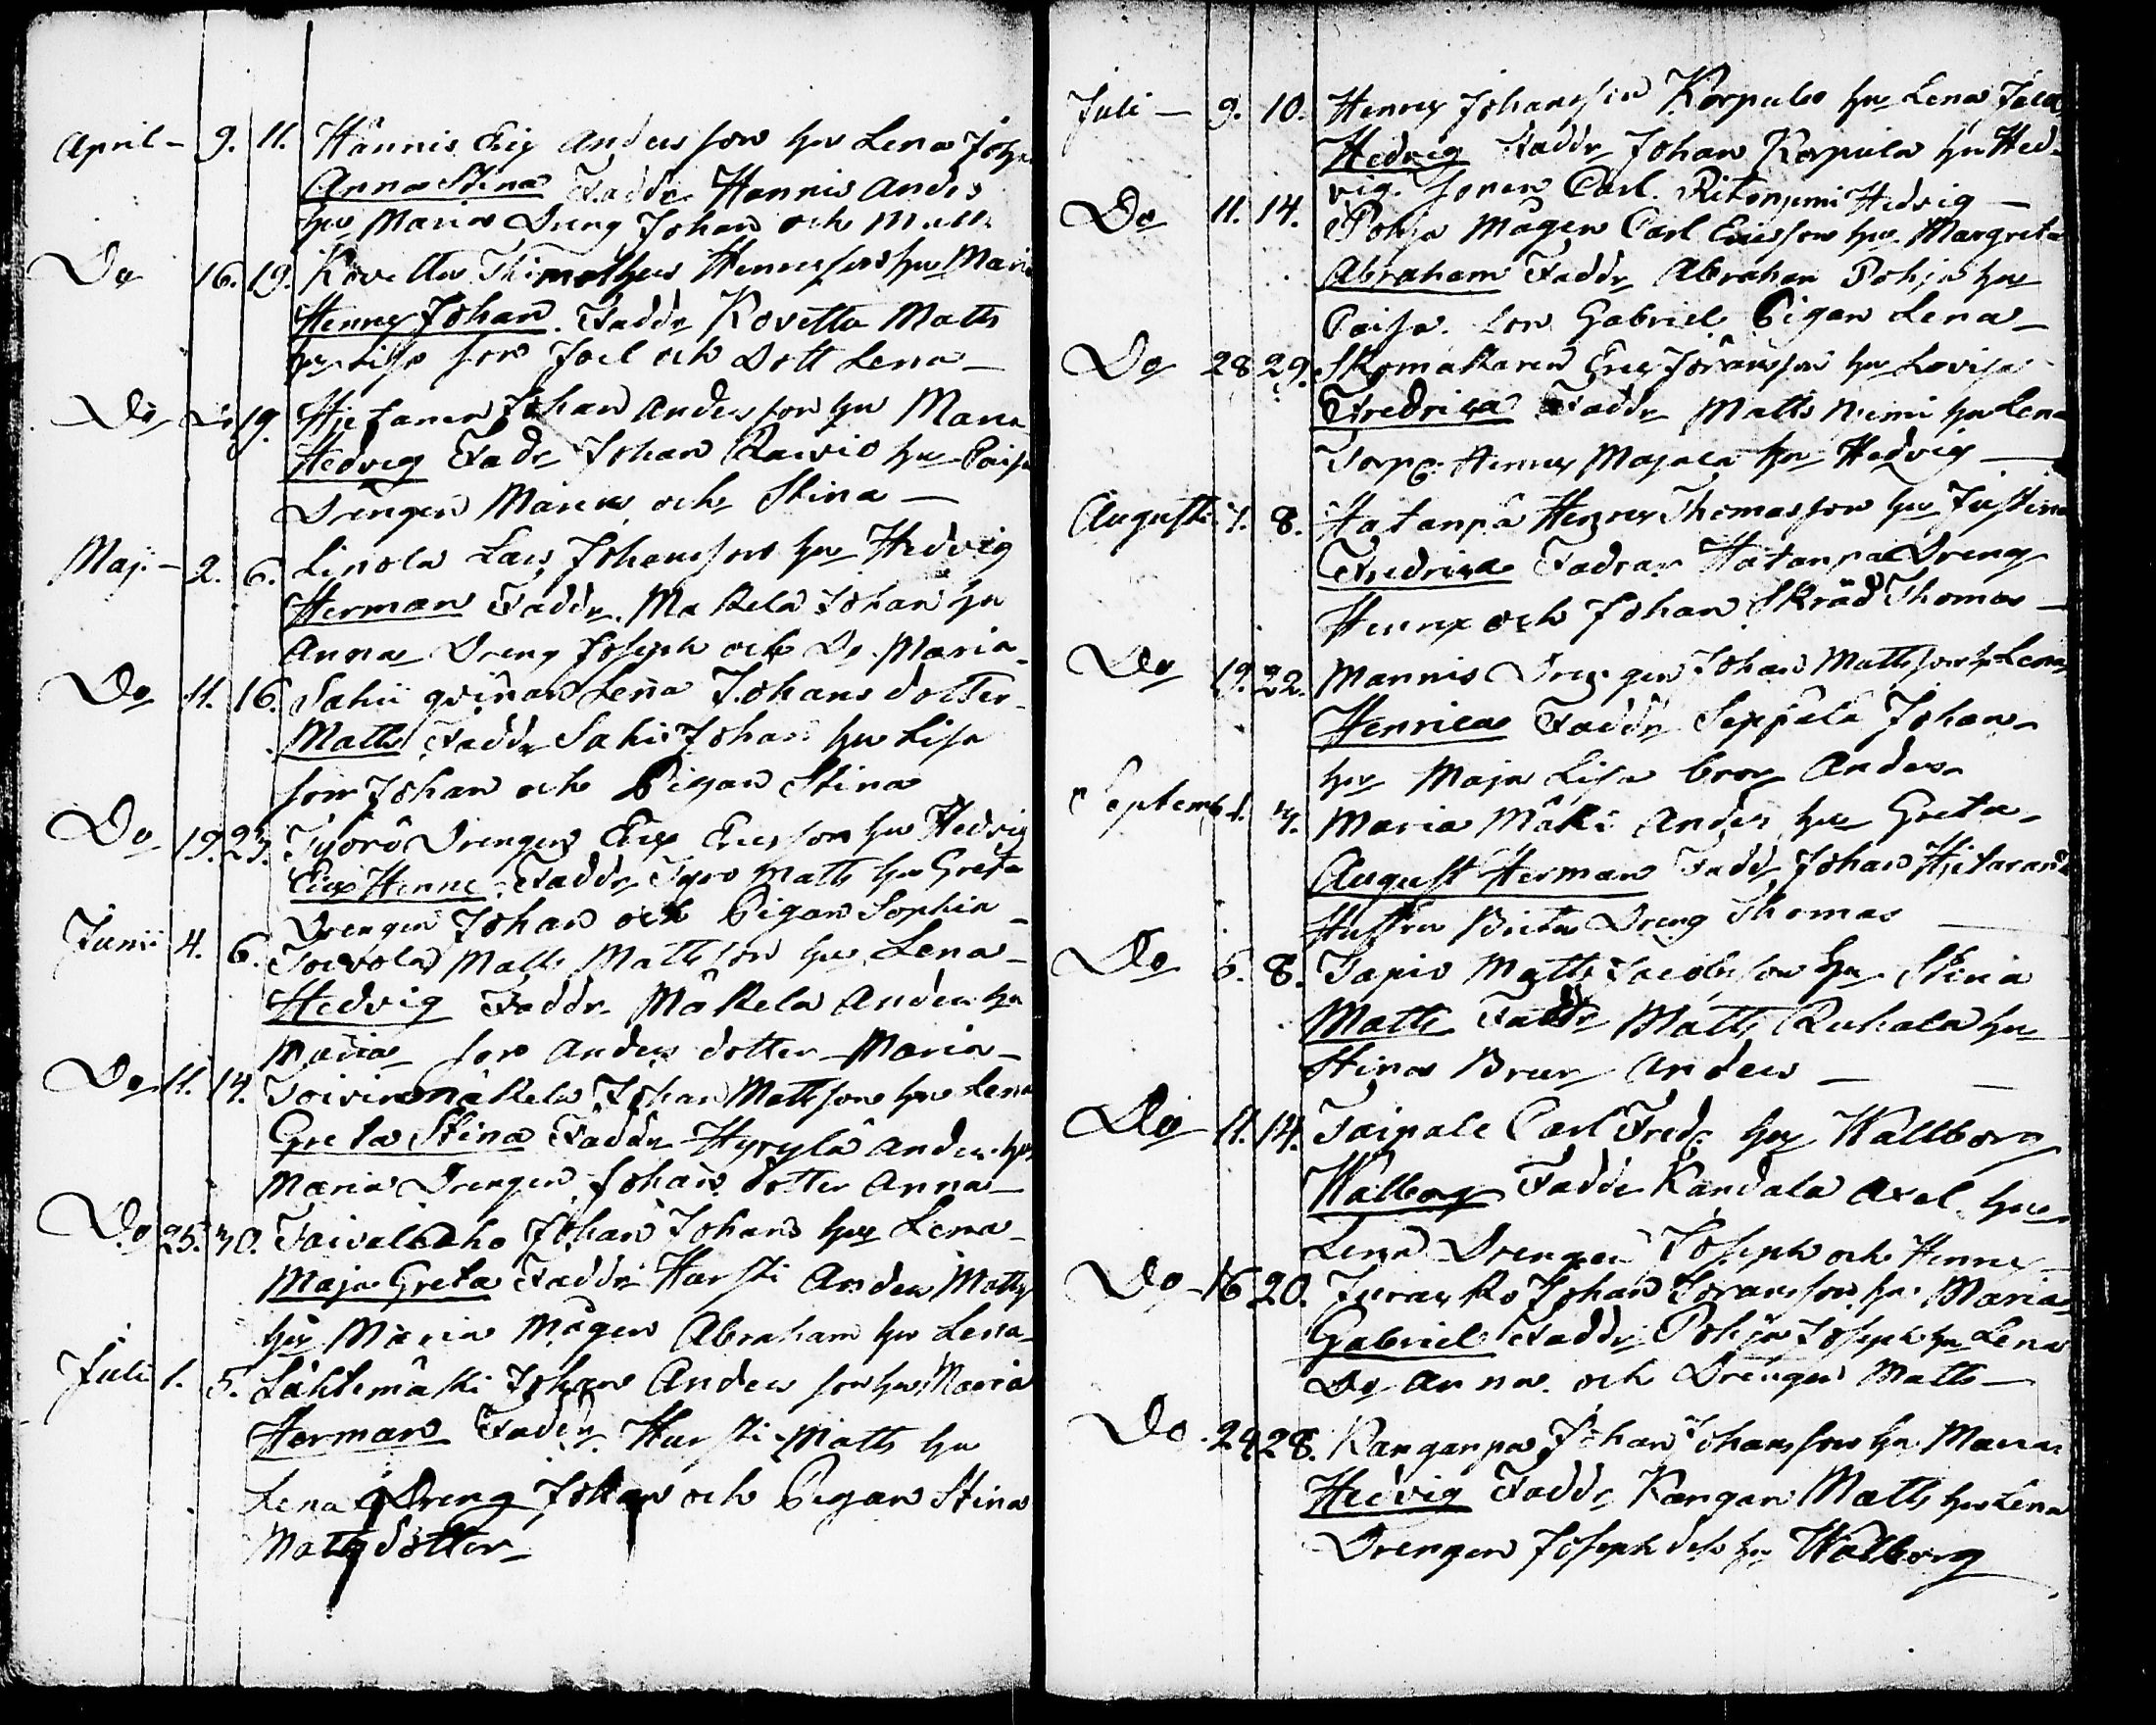 April - 9. 11. Hannis Eric Andersson hu Lena Joh
Anna Stina Faddr Hannis Anders
hu Maria Dreng Johan och
Do 16. 19. Kovetta Thimotheus Henricsson hu Mari
Henric Johan. Faddr Kovetta Matts
Lisa son Joel och Dott Lena -
Do Do 19. Hietanen Johan Andersson hu Maria
Hedvig Fadr Johan Raivio hu Caisa
Drengen Marcus och Stina -
Maji - 2. 6. Linola Lars Johansson hu Hedvig
Herman Faddr. Makela Johan hu
Anna Dreng Joseph och Do Maria -
Do 11. 16. Sahii qvinan Lena Johans dotter -
Matts Faddr Sahi Johan hu Lisa
son Johan och Pigan Stina
Do 19. 23. Työrö Drengen Eric Ericsson hu Hedvig
Eric Henric Faddr Tyro Matts hu Greta
Drengen Johan och Pigan Sophia -
Junii 4. 6. Toivola Matts Mattsson hu Lena -
Hedvig Faddr Mäkela Anders hu
Maria son Anders dotter Maria -
Do 11. 14. Toivinmäkela Johan Mattsson hu Lena
Greta Stina Faddr Hyrylä Anders hu
Maria Drengen Johan dotter Anna -
Do 25. 30. Taivalkaho Johan Johans hu Lena -
Maja Greta Faddr Hursti Anders Matts
hu Maria Mågen Abraham hu Lena -
Juli 1. 5. Lähtemäki Johan Andersson hu Maria
Herman Faddr. Hursti Matts hu
Lena Dreng Johan och Pigan Stina
Matts dotter -
Juli - 9. 10. Henric Johansson Korpula hu Lena
Hedvig Faddr Johan Korpula hu Hed-
vig. sonen Carl. Ritoniemi Hedvig -
Do 11. 14. Pohja Mågen Carl Ericsson hu Margreta
Abraham Faddr Abraham Pohja hu
Caisa. son Gabriel Pigan Lena -
Do 28 29. Skomakaren Eric Johansson hu Lovisa
Fredrica Faddr Matts Niemi hu Lena
Torp. Henric Majala hu Hedvig -
Augusti 7. 8. Hatanpä Henric Thomasson hu Justina
Fredrica Fadrar Hatanpä Dreng
Henric och Johan Skräd Thomas -
Do 19. 22. Mannis Drengen Johan Mattsson hu Lena
Henrica Faddr Seppälä Johan -
hu Maja Lisa bror Anders
Septemb 1. 4. Maria Mäki Anders hu Greta -
August Herman Faddr Johan Hietaranta
Hustru Brita Dreng Thomas -
Do 6. 8. Tapio Matts Jacobsson hu Stina
Matts Faddr Matts Ruhala hu
Stina Brun Anders -
Do 11. 14. Taipale Carl Fredr hu Wallborg
Walborg Faddr Kandala Axel hu
Lena Drengen Joseph och Henric -
Do 16 20. Johan Johansson hu Maria
Gabriel Faddr Pohja Joseph hu Lena
Do Anna. och Drengen Matts -
Do 24 28. Kanganpä Johan Johansson hu Maria
Hedvig Faddr Kangan Matts hu Lena
Drengen Joseph och hu Walborg